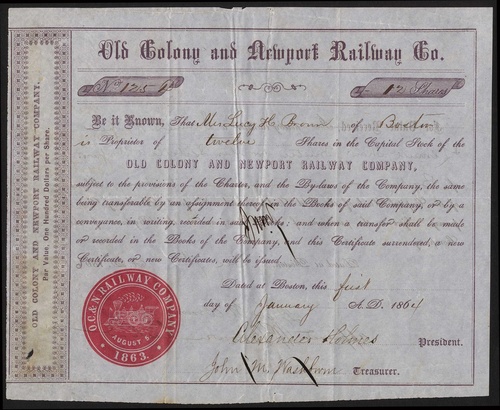 Old Colony and Newport Railway Co.
No. 125
12 Shares
Be it Known, That Mrs Lucy H. Brown of Boston
is Proprietor of twelve Shares in the Capital Stock of the
OLD COLONY AND NEWPORT RAILWAY COMPANY,
subject to the provisions of the Charter, and the By-laws of the Company, the same
being transferable by an assignment thereof in the Books of said Company, or by a
conveyance, in writing, recorded in such Books; and when a transfer shall be made
or recorded in the Books of the Company, and this Certificate surrendered, a new
Certificate, or new Certificates, will be issued.
Dated at Boston, this first
day of January A.D. 1864
Alexander Holmes President.
John M. Washburn Treasurer.
O.C.&N. RAILWAY COMPANY
AUGUST 6.
1863.
OLD COLONY AND NEWPORT RAILWAY COMPANY.
Par Value, One Hundred Dollars per Share.